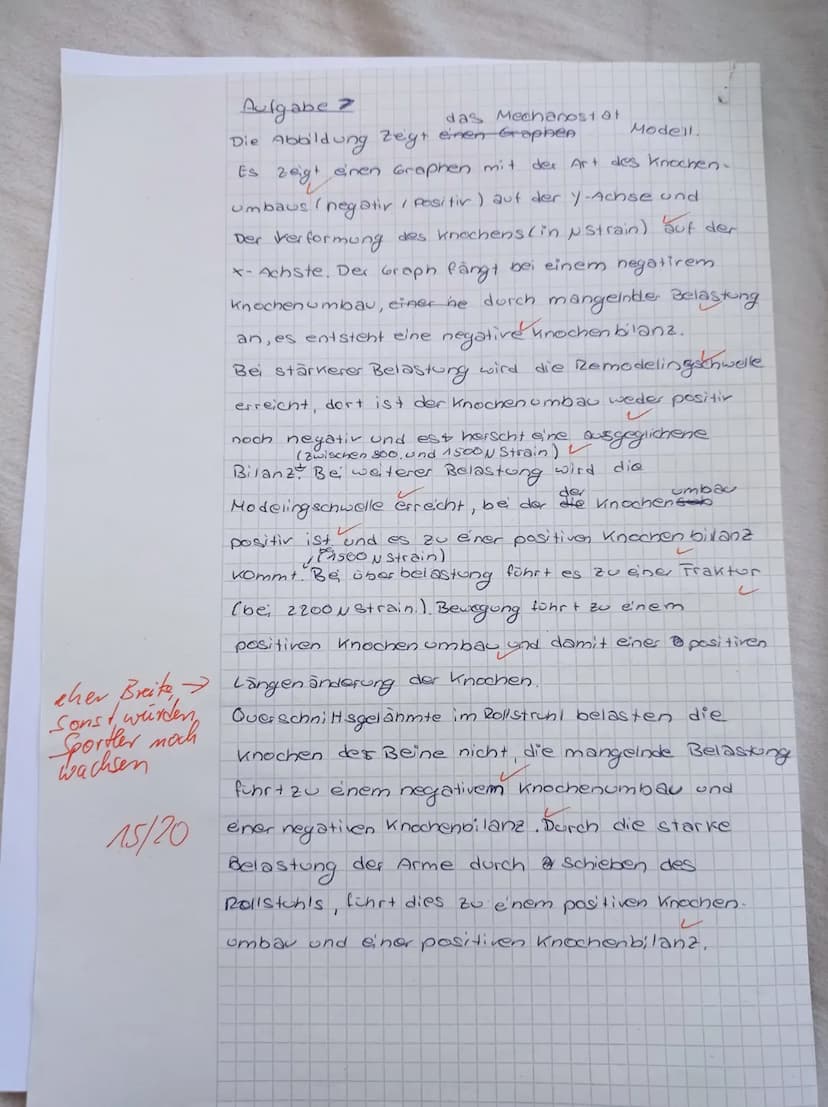 Aufgabe 2
das Mechanostat
Die Abbildung zeigt einen Graphen Modell.
Es zeigt einen Graphen mit der Art des Knochen-
umbaus (negativ / positiv) auf der y-Achse und
Der Verformung des Knochens (in µStrain) auf der
x-Achste. Der Graph fängt bei einem negativem
Knochenumbau, einer he durch mangelnder Belastung
an, es entsteht eine negative Knochenbilanz.
Bei stärkerer Belastung wird die Remodelingschwelle
erreicht, dort ist der Knochenumbau weder positiv
noch negativ und est herscht eine ausgeglichene
(zwischen 800 und 1500 µStrain)
Bilanz. Bei weiterer Belastung wird die
der umbau
Modelingschwelle erreicht, bei der die Knochen
positiv ist und es zu einer positiven Knochenbilanz
1500 µStrain)
kommt. Bei überbelastung führt es zu einer Fraktur
(bei 2200 µStrain). Bewegung führt zu einem
positiven Knochenumbau und damit einer positiven
Längenänderung der Knochen.
eher Breite, →
sonst würden
Sportler noch
wachsen
Querschnittsgelähmte im Rollstruhl belasten die
Knochen der Beine nicht, die mangelnde Belastung
führt zu einem negativem Knochenumbau und
einer negativen Knochenbilanz. Durch die starke
15/20
Belastung der Arme durch schieben des
Rollstuhls, führt dies zu einem positiven Knochen-
umbau und einer positiven Knochenbilanz.